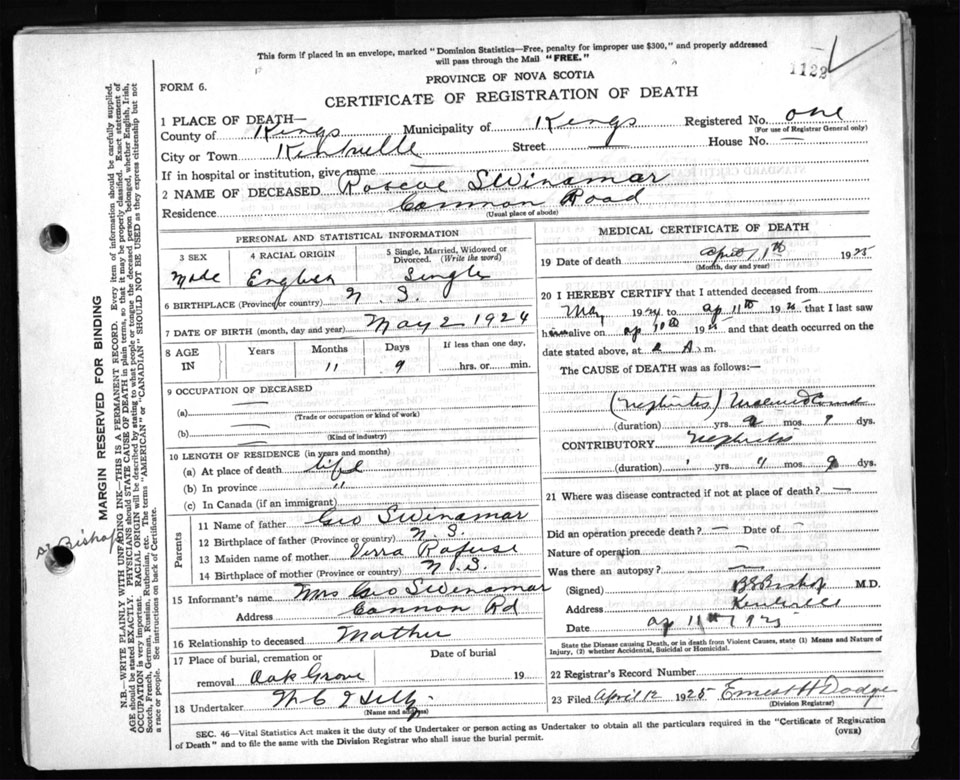 This form if placed in an envelope, marked "Dominion Statistics—Free, penalty for improper use $300," and properly addressed
will pass through the Mail "FREE."
1122
FORM 6.
PROVINCE OF NOVA SCOTIA
CERTIFICATE OF REGISTRATION OF DEATH
1 PLACE OF DEATH—
County of Kings Municipality of Kings Registered No. one
(For use of Registrar General only)
City or Town Kentville Street — House No. —
If in hospital or institution, give name
2 NAME OF DECEASED Roscoe Swinamar
Residence Cannon Road
(Usual place of abode)
PERSONAL AND STATISTICAL INFORMATION
3 SEX 4 RACIAL ORIGIN 5 Single, Married, Widowed or Divorced. (Write the word)
Male English Single
6 BIRTHPLACE (Province or country) N. S.
7 DATE OF BIRTH (month, day and year) May 2 1924
8 AGE IN Years Months Days If less than one day,
11 9 hrs. or min.
9 OCCUPATION OF DECEASED
(a) —
(Trade or occupation or kind of work)
(b) —
(Kind of industry)
10 LENGTH OF RESIDENCE (in years and months)
(a) At place of death life
(b) In province "
(c) In Canada (if an immigrant)
Parents
11 Name of father Geo Swinamar
12 Birthplace of father (Province or country) N. S.
13 Maiden name of mother Verra Rafuse
14 Birthplace of mother (Province or country) N. S.
15 Informant's name Mrs Geo Swinamar
Address Cannon Rd
16 Relationship to deceased Mother
17 Place of burial, cremation or removal Oak Grove
Date of burial 19
18 Undertaker
(Name and address)
MEDICAL CERTIFICATE OF DEATH
19 Date of death April 11th 1925
(Month, day and year)
20 I HEREBY CERTIFY that I attended deceased from
May 1924 to ap 11th 1925 that I last saw
him alive on ap 10th 1925 and that death occurred on the
date stated above, at A. m.
The CAUSE of DEATH was as follows:—
(Nephritis)
(duration) yrs. mos. 9 dys.
CONTRIBUTORY Nephritis
(duration) yrs. mos. 9 dys.
21 Where was disease contracted if not at place of death? —
Did an operation precede death? — Date of —
Nature of operation —
Was there an autopsy? —
(Signed) BS Bishop M.D.
Address Kentville
Date ap 11th 1925
State the Disease causing Death, or in death from Violent Causes, state (1) Means and Nature of
Injury, (2) whether Accidental, Suicidal or Homicidal.
22 Registrar's Record Number
23 Filed April 12 1925 Ernest H Dodge
(Division Registrar)
SEC. 46—Vital Statistics Act makes it the duty of the Undertaker or person acting as Undertaker to obtain all the particulars required in the "Certificate of Registration
of Death" and to file the same with the Division Registrar who shall issue the burial permit.
(OVER)
MARGIN RESERVED FOR BINDING
N.B.—WRITE PLAINLY WITH UNFADING INK—THIS IS A PERMANENT RECORD. Every item of information should be carefully supplied.
AGE should be stated EXACTLY. PHYSICIANS should STATE CAUSE OF DEATH in plain terms, so that it may be properly classified. Exact statement of
OCCUPATION is very important. RACIAL ORIGIN will be described by stating to what people or tongue the deceased person belonged, whether English, Irish,
Scotch, French, German, Russian, Ruthenian, etc. The terms "AMERICAN" or "CANADIAN" SHOULD NOT BE USED as they express citizenship but not
a race or people. See instructions on back of Certificate.
Bishop